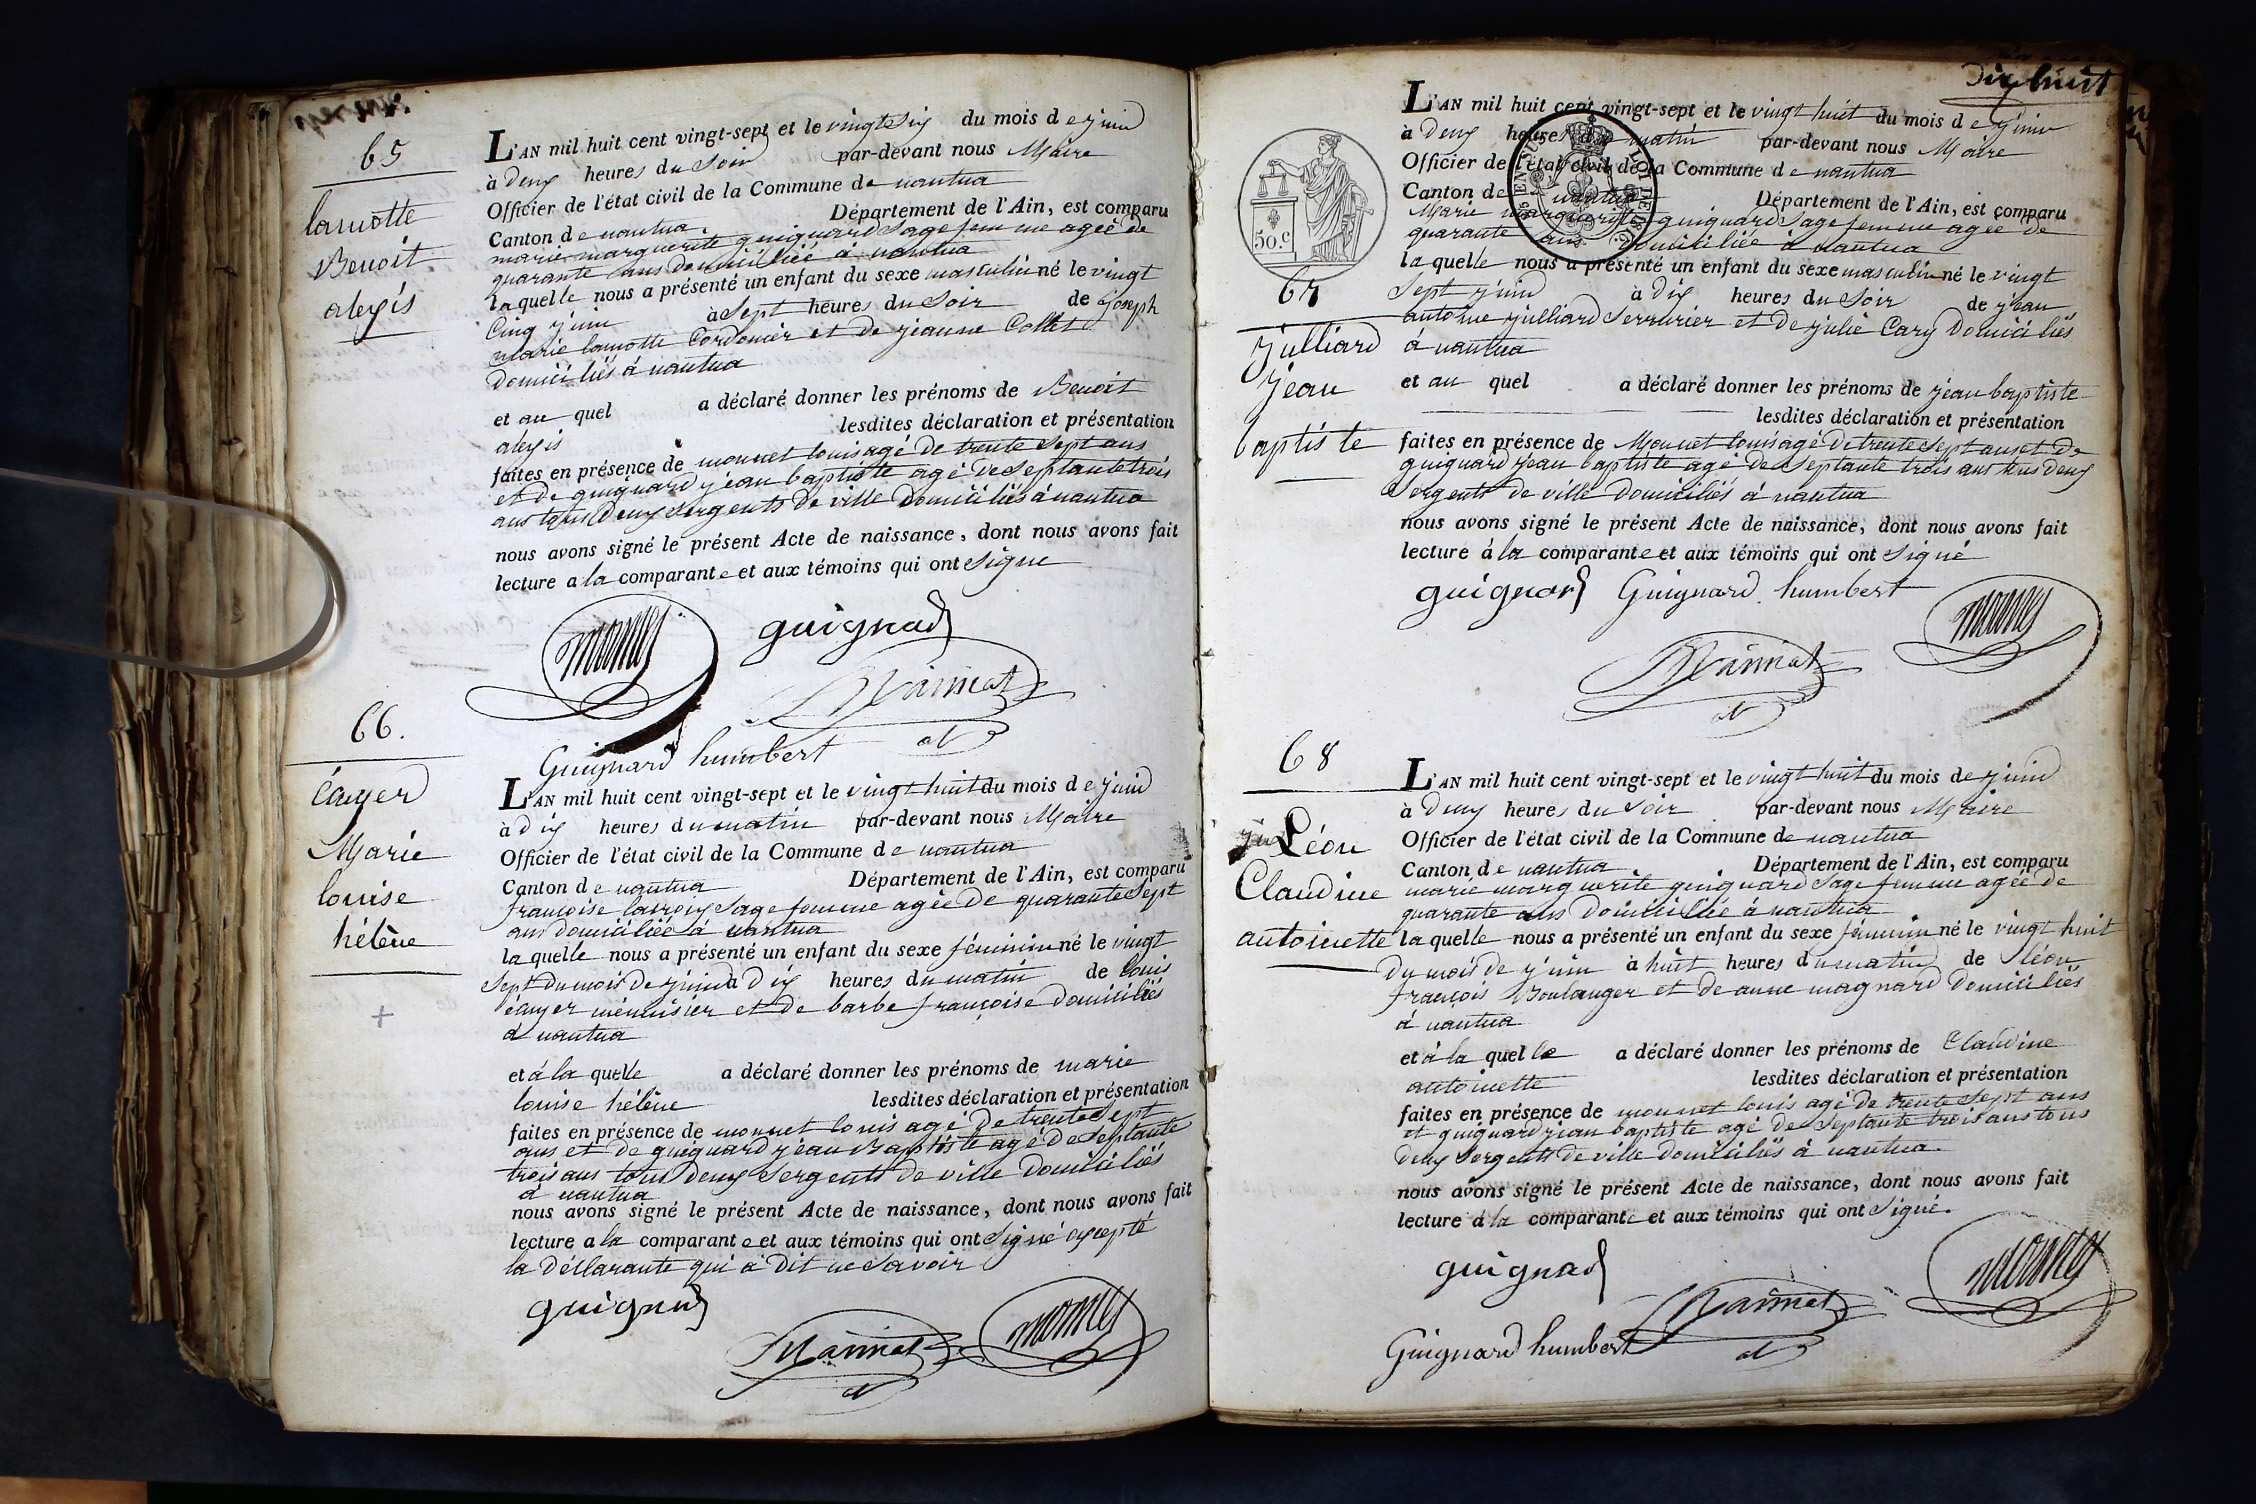 65
lamotte
Benoit
alexis
L'AN mil huit cent vingt-sept et le vingt six du mois de juin
à deux heures du Soir par-devant nous Maire
Officier de l'état civil de la Commune de nantua
Canton de nantua. Département de l'Ain, est comparu
marie marguerite guignard Sage femme agée de
quarante ans domiciliée à nantua
laquelle nous a présenté un enfant du sexe masculin né le vingt
Cinq juin à Sept heures du Soir de joseph
marie lamotte Cordonier et de jeanne Collet
domiciliés à nantua
et au quel a déclaré donner les prénoms de Benoit
alexis lesdites déclaration et présentation
faites en présence de monnet louis agé de trente Sept ans
et de guignard jean baptiste agé de Septante trois
ans tous deux Sergents de ville domiciliés à nantua
nous avons signé le présent Acte de naissance, dont nous avons fait
lecture a la comparante et aux témoins qui ont Signe
monnet guignard
Guignard humbert
66.
Éauyer
Marie
louise
hélène
L'AN mil huit cent vingt-sept et le vingt huit du mois de juin
à dix heures du matin par-devant nous Maire
Officier de l'état civil de la Commune de nantua
Canton de nantua Département de l'Ain, est comparu
françoise lacroix Sage femme agée de quarante Sept
ans domiciliée à nantua
laquelle nous a présenté un enfant du sexe féminin né le vingt
Sept du mois de juin à dix heures du matin de louis
éauyer ménuisier et de barbe françoise domiciliés
à nantua
et à la quelle a déclaré donner les prénoms de marie
louise hélène lesdites déclaration et présentation
faites en présence de monnet louis agé de trente Sept
ans et de guignard jean Baptiste agé de Septante
trois ans tous deux Sergents de ville domiciliés
à nantua
nous avons signé le présent Acte de naissance, dont nous avons fait
lecture a la comparante et aux témoins qui ont Signé excepté
la déclarante qui à dit ne Savoir
guignard
monnet
Dix huit
50.C
67
julliard
jean
baptiste
L'AN mil huit cent vingt-sept et le vingt huit du mois de juin
à deux heures du matin par-devant nous Maire
Officier de l'état civil de la Commune de nantua
Canton de nantua Département de l'Ain, est comparu
Marie marguerite guignard Sage femme agée de
quarante ans domiciliée à nantua
laquelle nous a présenté un enfant du sexe masculin né le vingt
Sept juin à dix heures du Soir de jean
antoine julliard Serrurier et de julie Cary domiciliés
à nantua
et au quel a déclaré donner les prénoms de jean baptiste
lesdites déclaration et présentation
faites en présence de Monnet louis agé de trente Sept ans et de
guignard jean baptiste agé de Septante trois ans tous deux
Sergents de ville domiciliés à nantua
nous avons signé le présent Acte de naissance, dont nous avons fait
lecture à la comparante et aux témoins qui ont Signé
guignard Guignard humbert monnet
68
Léon
Claudine
antoinette
L'AN mil huit cent vingt-sept et le vingt huit du mois de juin
à deux heures du Soir par-devant nous Maire
Officier de l'état civil de la Commune de nantua
Canton de nantua Département de l'Ain, est comparu
marie marguerite guignard Sage femme agée de
quarante ans domiciliée à nantua
laquelle nous a présenté un enfant du sexe féminin né le vingt huit
du mois de juin à huit heures du matin de Léon
françois Boulanger et de anne magnard domiciliés
à nantua
et à la quelle a déclaré donner les prénoms de Claudine
antoinette lesdites déclaration et présentation
faites en présence de monnet louis agé de trente Sept ans
et guignard jean baptiste agé de Septante trois ans tous
deux Sergents de ville domiciliés à nantua.
nous avons signé le présent Acte de naissance, dont nous avons fait
lecture à la comparante et aux témoins qui ont Signé.
guignard monnet
Guignard humbert